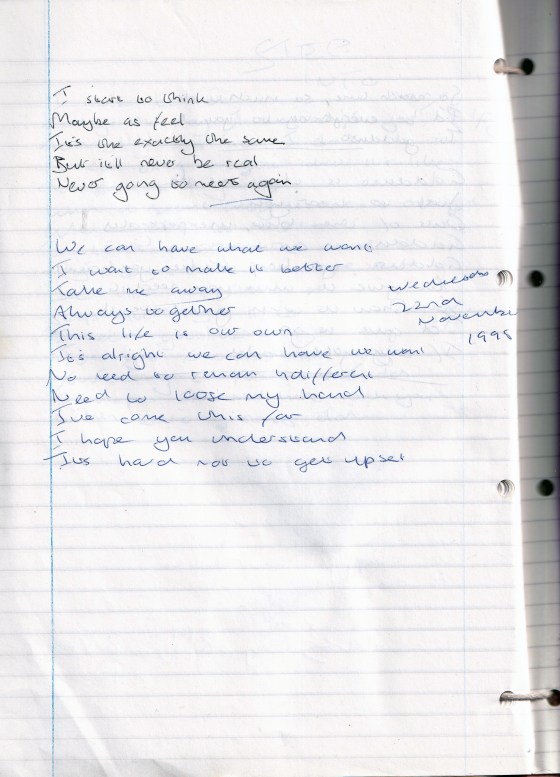 I start to think
Maybe as feel
It's the exactly the same
But it'll never be real
Never going to meet again
We can have what we want
I want to make it better
Take me away
Always together
This life is our own
It's alright we can have we want
No need to remain indifferent
Need to loose my hand
I've come this far
I hope you understand
It's hard not to get upset
Wednesday
22nd
November
1995